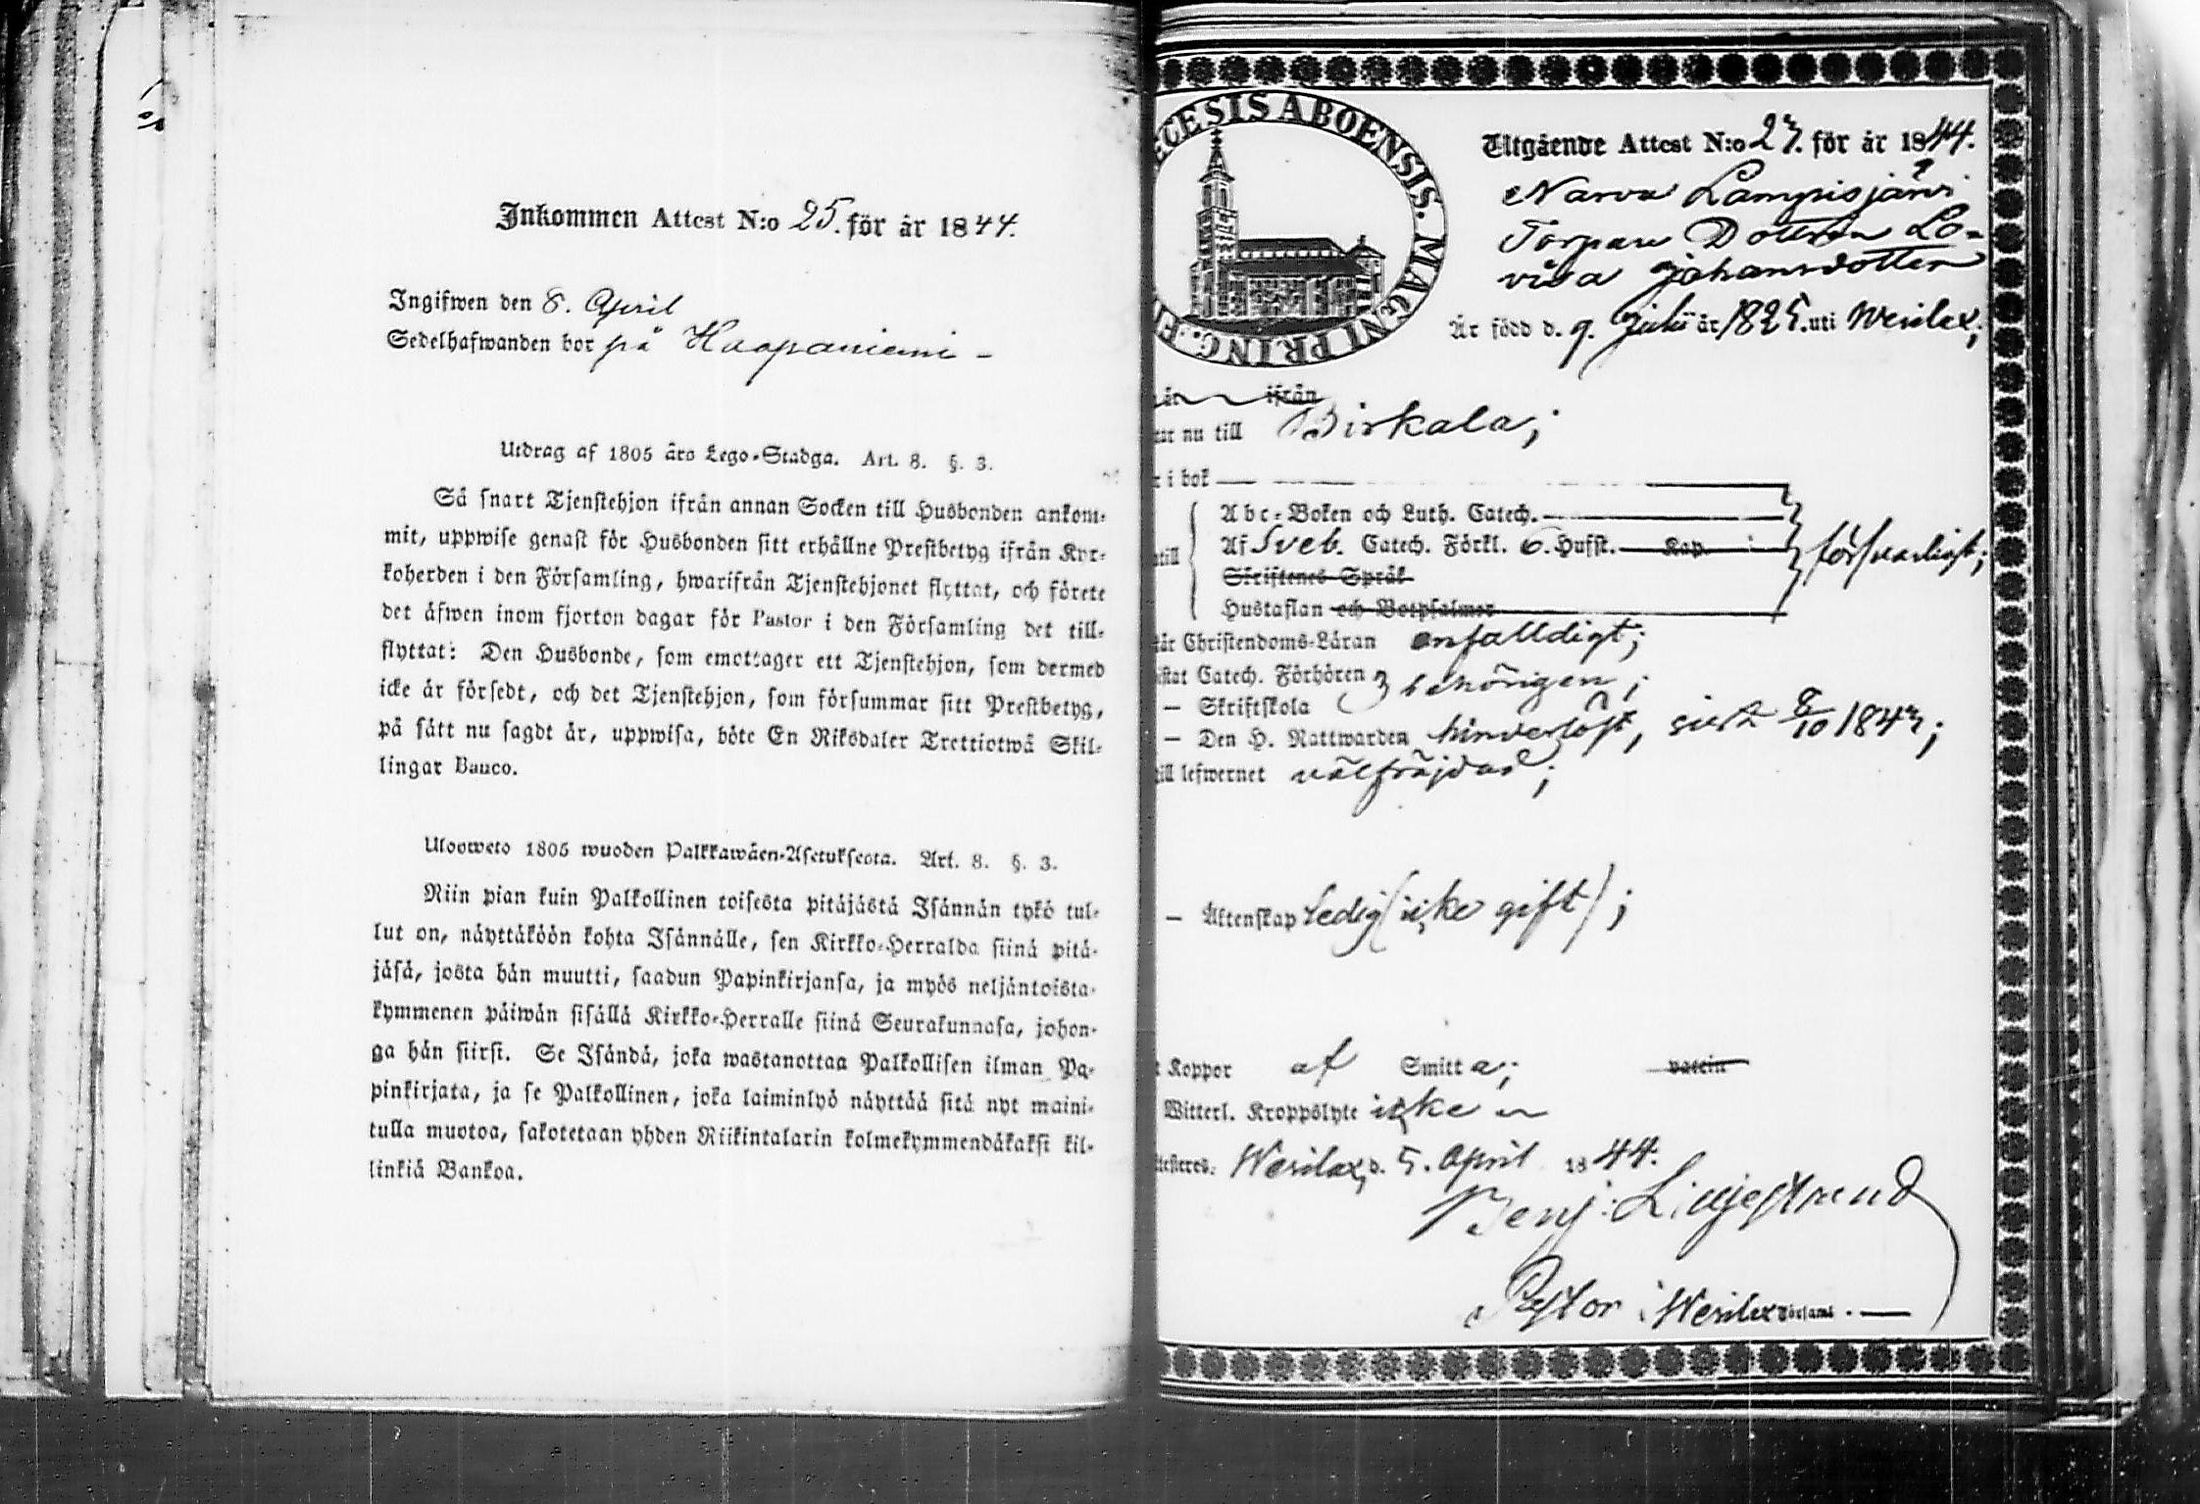 Inkommen Attest N:o 25. för år 1844.
Ingifwen den 8. April
Sedelhafwanden bor på Haapaniemi -
Utdrag af 1805 års Lego-Stadga. Art. 8. §. 3.
Så snart Tjenstehjon ifrån annan Socken till Husbonden ankom-
mit, uppwise genast för Husbonden sitt erhållne Prestbetyg ifrån Kyr-
koherden i den Församling, hwarifrån Tjenstehjonet flyttat, och förete
det äfwen inom fjorton dagar för Pastor i den Församling det till-
flyttat: Den Husbonde, som emottager ett Tjenstehjon, som dermed
icke är försedt, och det Tjenstehjon, som försummar sitt Prestbetyg,
på sätt nu sagdt är, uppwisa, böte En Riksdaler Trettiotwå Skil-
lingar Banco.
Ulosweto 1805 wuoden Palkkawäen-Asetuksesta. Art. 8. §. 3.
Niin pian kuin Palkollinen toisesta pitäjästä Isännän tykö tul-
lut on, näyttäköön kohta Isännälle, sen Kirkko-Herralda siinä pitä-
jäsä, josta hän muutti, saadun Papinkirjansa, ja myös neljäntoista-
kymmenen päiwän sisällä Kirkko-Herralle siinä Seurakunnasa, johon-
ga hän siirsi. Se Isändä, joka wastanottaa Palkollisen ilman Pa-
pinkirjata, ja se Palkollinen, joka laiminlyö näyttää sitä nyt maini-
tulla muotoa, sakotetaan yhden Riikintalarin kolmekymmendäkaksi kil-
linkiä Bankoa.
ECESIS ABOENSIS. MAGNI PRINC. FI
Utgående Attest N:o 27. för år 1844.
Narva Lampisjärvi
Torpare Dottren Lo-
visa Johansdotter
Är född d. 9. Julii år 1825. uti Wesilax;
år ifrån
tar nu till Birkala;
r i bok
Abc-Boken och Luth. Catech.
till Af Sveb. Catech. Förkl. 6. Hufst. Kap. försvarligt;
Skriftenes Språk
Hustaflan och Botpsalmer
tår Christendoms-Läran enfalldigt;
istat Catech. Förhören
- Skriftskola behörigen;
- Den H. Nattwarden hinderlöst, sist 8/10 1843;
till lefwernet välfräjdad;
- Äktenskap Ledig (icke gift);
t Koppor af Smitta; vaccin
Witterl. Kroppslyte icke
ttesteres. Wesilax, d. 5. April 1844.
Benj: Liljestrand
Pastor i Wesilax Församl.